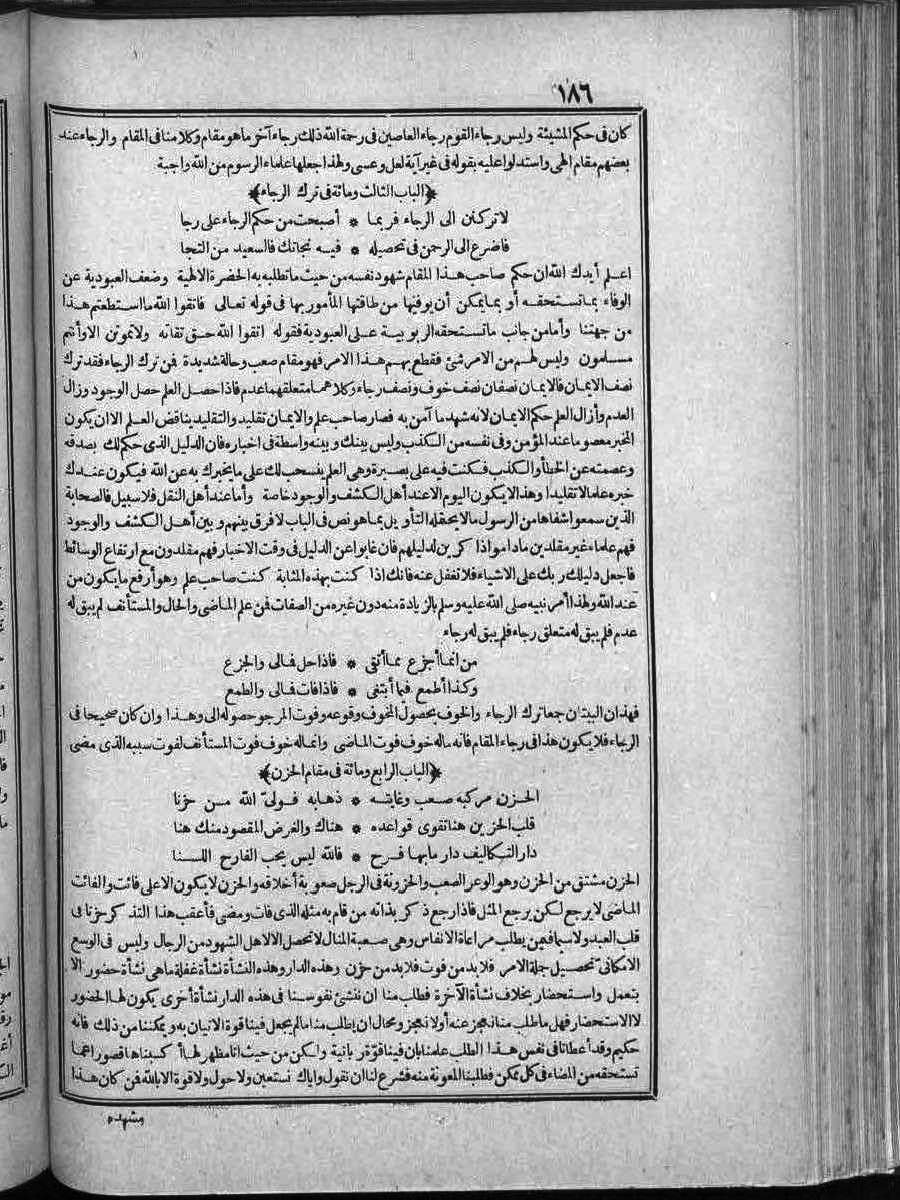 ١٨٦
كان فى حكم المشيئة وليس رجاء القوم رجاء العاصين فى رحمة الله ذلك رجاء آخر ما هو مقام وكلامنا فى المقام والرجاء عند
بعضهم مقام الهى واستدلوا عليه بقوله فى غير آية لعل وعسى ولهذا جعلها علماء الرسوم من الله واجبة
﴿الباب الثالث ومائة فى ترك الرجاء﴾
لا تركنن الى الرجاء فربما * أصبحت من حكم الرجاء على رجا
فاضرع الى الرحمن فى تحصيله * فيه نجاتك فالسعيد من النجا
اعلم أيدك الله ان حكم صاحب هذا المقام شهود نفسه من حيث ما تطلبه به الحضرة الالهية وضعف العبودية عن
الوفاء بما تستحقه أو بما يمكن أن يوفيها من طاقتها المأمور بها فى قوله تعالى فاتقوا الله ما استطعتم هذا
من جهتنا وأما من جانب ما تستحقه الربوبية على العبودية فقوله اتقوا الله حق تقاته ولا تموتن الا وأنتم
مسلمون وليس لهم من الامر شئ فقطع بهم هذا الامر فهو مقام صعب وحالة شديدة فمن ترك الرجاء فقد ترك
نصف الايمان فالايمان نصفان نصف خوف ونصف رجاء وكلاهما متعلقهما عدم فاذا حصل العلم حصل الوجود وزال
العدم وأزال العلم حكم الايمان لانه شهد ما آمن به فصار صاحب علم والايمان تقليد والتقليد يناقض العلم الا ان يكون
المخبر معصوما عند المؤمن وفى نفسه من الكذب وليس بينك وبينه واسطة فى اخباره فان الدليل الذى حكم لك بصدقه
وعصمته عن الخطأ والكذب فكنت فيه على بصيرة وهى العلم ينسحب لك على ما يخبرك به عن الله فيكون عندك
خبره علما لا تقليدا وهذا لا يكون اليوم الا عند أهل الكشف والوجود خاصة وأما عند أهل النقل فلا سبيل فالصحابة
الذين سمعوا شفاها من الرسول ما لا يحتمله التأويل بما هو نص فى الباب لا فرق بينهم وبين أهل الكشف والوجود
فهم علماء غير مقلدين ما داموا ذاكرين لدليلهم فان غابوا عن الدليل فى وقت الاخبار فهم مقلدون مع ارتفاع الوسائط
فاجعل دليلك ربك على الاشياء فلا تغفل عنه فانك اذا كنت بهذه المثابة كنت صاحب علم وهو أرفع ما يكون من
عند الله ولهذا أمر نبيه صلى الله عليه وسلم بالزيادة منه دون غيره من الصفات فمن علم الماضى والحال والمستأنف لم يبق له
عدم فلم يبق له متعلق رجاء فلم يبق له رجاء
من انما أجزع بما أتقى * فاذا حل فمالى والجزع
وكذا أطمع فيما أبتغى * فاذا فات فمالى والطمع
فهذان البيتان جمعا ترك الرجاء والخوف بحصول المخوف وقوعه وفوت المرجو حصوله الى وهذا وان كان صحيحا فى
الرجاء فلا يكون هذا فى رجاء المقام فانه ماله خوف فوت الماضى وانما له خوف فوت المستأنف لفوت سببه الذى مضى
﴿الباب الرابع ومائة فى مقام الحزن﴾
الحزن مركبه صعب وغايته * ذهابه فولىّ الله من حزنا
قلب الحزين هنا تقوى قواعده * هناك والغرض المقصود منك هنا
دار التكاليف دار ما بها فرح * فالله ليس يحب الفارح اللسنا
الحزن مشتق من الحزن وهو الوعر الصعب والحزونة فى الرجل صعوبة أخلاقه والحزن لا يكون الا على فائت والفائت
الماضى لا يرجع لكن يرجع المثل فاذا رجع ذكر بذاته من قام به مثله الذى فات ومضى فأعقب هذا التذكر حزنا فى
قلب العبد ولا سيما فيمن يطلب مراعاة الانفاس وهى صعبة المنال لا تحصل الا لاهل الشهود من الرجال وليس فى الوسع
الامكانىّ تحصيل جملة الامر فلا بد من فوت فلا بد من حزن وهذه الدار وهذه النشأة نشأة غفلة ما هى نشأة حضور الا
بتعمل واستحضار بخلاف نشأة الآخرة فطلب منا ان ننشئ نفوسنا فى هذه الدار نشأة أخرى يكون لها الحضور
لا الاستحضار فهل ما طلب منا نعجز عنه أو لا نعجز ومحال ان يطلب منا ما لم يجعل فينا قوة الاتيان به ويمكننا من ذلك فانه
حكيم وقد أعطانا فى نفس هذا الطلب علمنا بان فينا قوّة ربانية ولكن من حيث انا مظهر لها أكسبناها قصورا عما
تستحقه من المضاء فى كل ممكن فطلبنا المعونة منه فشرع لنا ان نقول واياك نستعين ولا حول ولا قوة الا بالله فمن كان هذا
مشهده